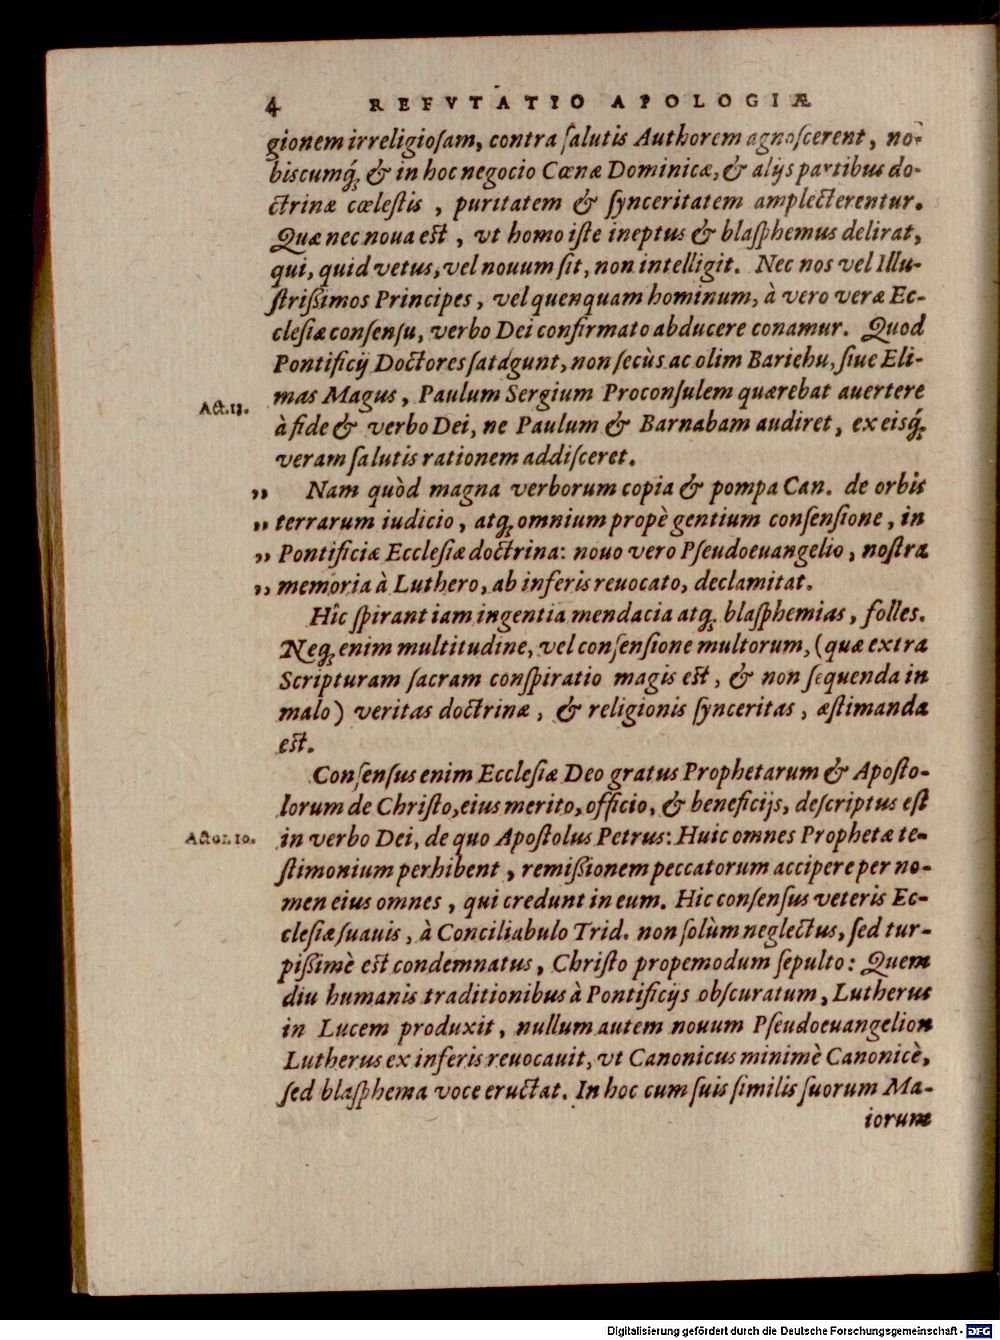 4 REFVTATIO APOLOGIÆ
gionem irreligioſam, contra ſalutis Authorem agnoſcerent, no-
biscumq́; & in hoc negocio Cœnæ Dominicæ, & alijs partibus do-
ctrinæ cœleſtis, puritatem & ſynceritatem amplecterentur.
Quæ nec noua eſt, vt homo iſte ineptus & blaſphemus delirat,
qui, quid vetus, vel nouum ſit, non intelligit. Nec nos vel Illu-
ſtrißimos Principes, vel quenquam hominum, à vero veræ Ec-
cleſiæ conſenſu, verbo Dei confirmato abducere conamur. Quod
Pontificij Doctores ſatagunt, non ſecùs ac olim Bariehu, ſiue Eli-
Act.13. mas Magus, Paulum Sergium Proconſulem quærebat auertere
à fide & verbo Dei, ne Paulum & Barnabam audiret, ex eisq́;
veram ſalutis rationem addiſceret.
„ Nam quòd magna verborum copia & pompa Can. de orbis
„ terrarum iudicio, atq; omnium propè gentium conſenſione, in
„ Pontificiæ Eccleſiæ doctrina: nouo vero Pſeudoeuangelio, noſtra
„ memoria à Luthero, ab inferis reuocato, declamitat.
Hîc ſpirant iam ingentia mendacia atq; blaſphemias, folles.
Neq; enim multitudine, vel conſenſione multorum, (quæ extra
Scripturam ſacram conſpiratio magis eſt, & non ſequenda in
malo) veritas doctrinæ, & religionis ſynceritas, æſtimanda
eſt.
Conſenſus enim Eccleſiæ Deo gratus Prophetarum & Apoſto-
lorum de Chriſto, eius merito, officio, & beneficijs, deſcriptus eſt
Actor. 10. in verbo Dei, de quo Apoſtolus Petrus: Huic omnes Prophetæ te-
ſtimonium perhibent, remißionem peccatorum accipere per no-
men eius omnes, qui credunt in eum. Hic conſenſus veteris Ec-
cleſiæ ſuauis, à Conciliabulo Trid. non ſolùm neglectus, ſed tur-
pißimè eſt condemnatus, Chriſto propemodum ſepulto: Quem
diu humanis traditionibus à Pontificijs obſcuratum, Lutherus
in Lucem produxit, nullum autem nouum Pſeudoeuangelion
Lutherus ex inferis reuocauit, vt Canonicus minimè Canonicè,
ſed blaſphema voce eructat. In hoc cum ſuis ſimilis ſuorum Ma-
iorum
Digitalisierung gefördert durch die Deutsche Forschungsgemeinschaft - DFG